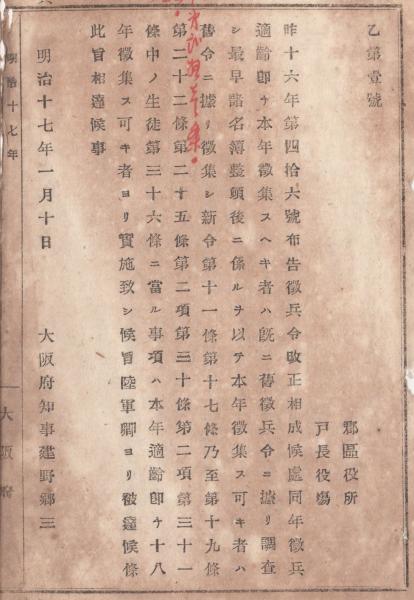 乙第壹號
郡區役所
戸長役塲
昨十六年第四拾六號布告徵兵令改正相成候處同年徵兵
適齡卽チ本年徵集スヘキ者ハ旣ニ舊徵兵令ニ據リ調査
シ最早諸名簿整頓後ニ係ルヲ以テ本年徵集ス可キ者ハ
舊令ニ據リ徵集シ新令第十一條第十七條乃至第十九條
第二十二條第二十五條第二項第三十條第二項第三十一
條中ノ生徒第三十六條ニ當ル事項ハ本年適齡卽チ十八
年徵集ス可キ者ヨリ實施致シ候旨陸軍卿ヨリ被達候條
此旨相達候事
明治十七年一月十日
大阪府知事建野鄕三
明治十七年
大阪府